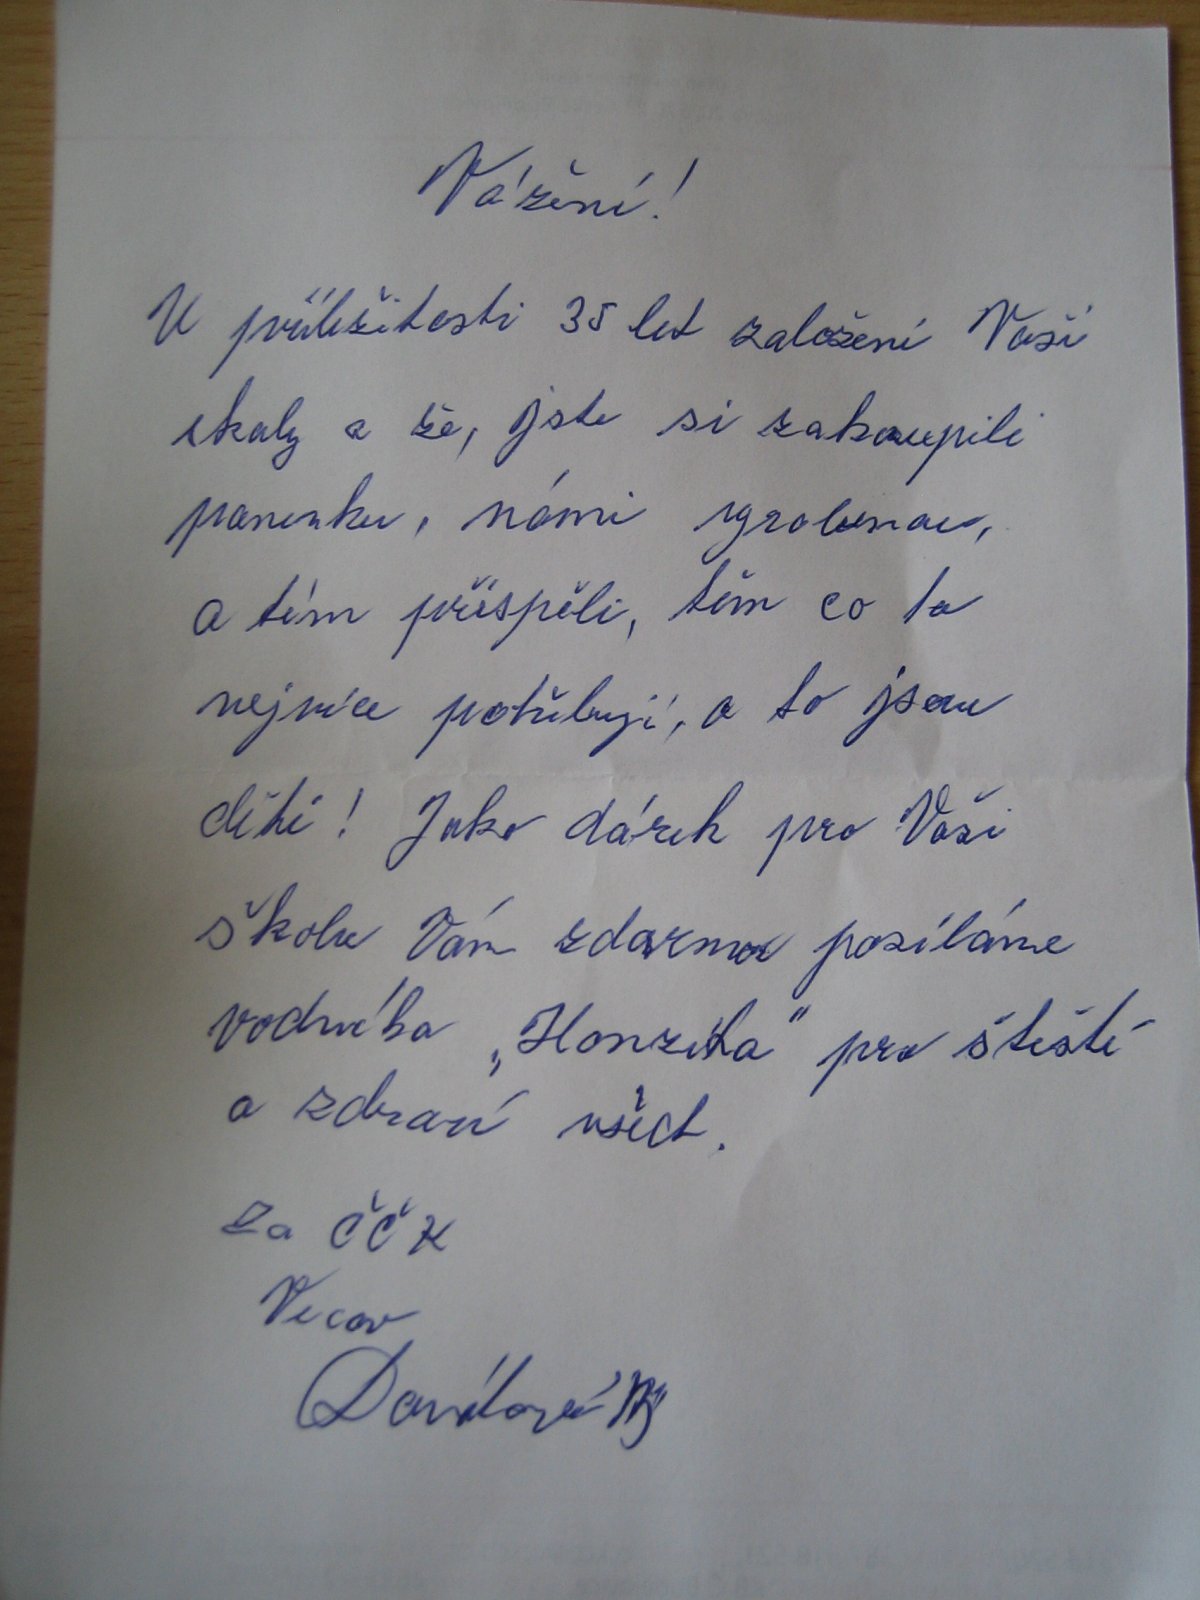 Vážení!
U příležitosti 35 let založení Vaší
školy a že, jste si zakoupili
panenku, námi vyrobenou,
a tím přispěli, těm co to
nejvíce potřebují, a to jsou
děti! Jako dárek pro Vaši
školu Vám zdarma posíláme
vodníka „Honzíka" pro štěstí
a zdraví všech.
Za ČČK
Vacov